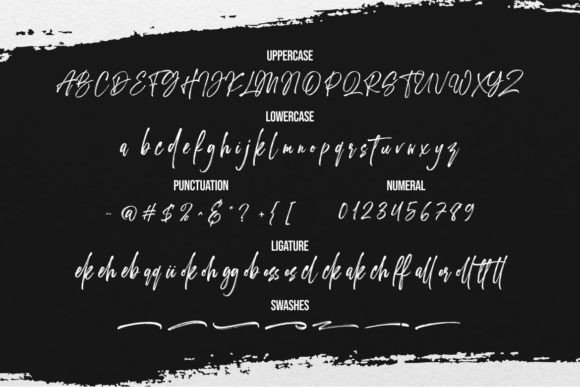 UPPERCASE
ABCDEFGHIJKLMNOPQRSTUVWXYZ
LOWERCASE
a b c d e f g h i j k l m n o p q r s t u v w x y z
PUNCTUATION
~ @ # $ % ^ & * ? + { [
NUMERAL
0 1 2 3 4 5 6 7 8 9
LIGATURE
ek eh eb qq ii ok oh gg ob oss os cl ck ak ch ff all or dl tt ll
SWASHES